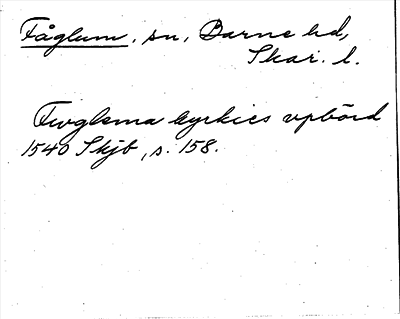 Fåglum, sn, Barne hd,
Skar. l.
Fwglsma kyrkies vpbörd
1540 Skjb, s. 158.